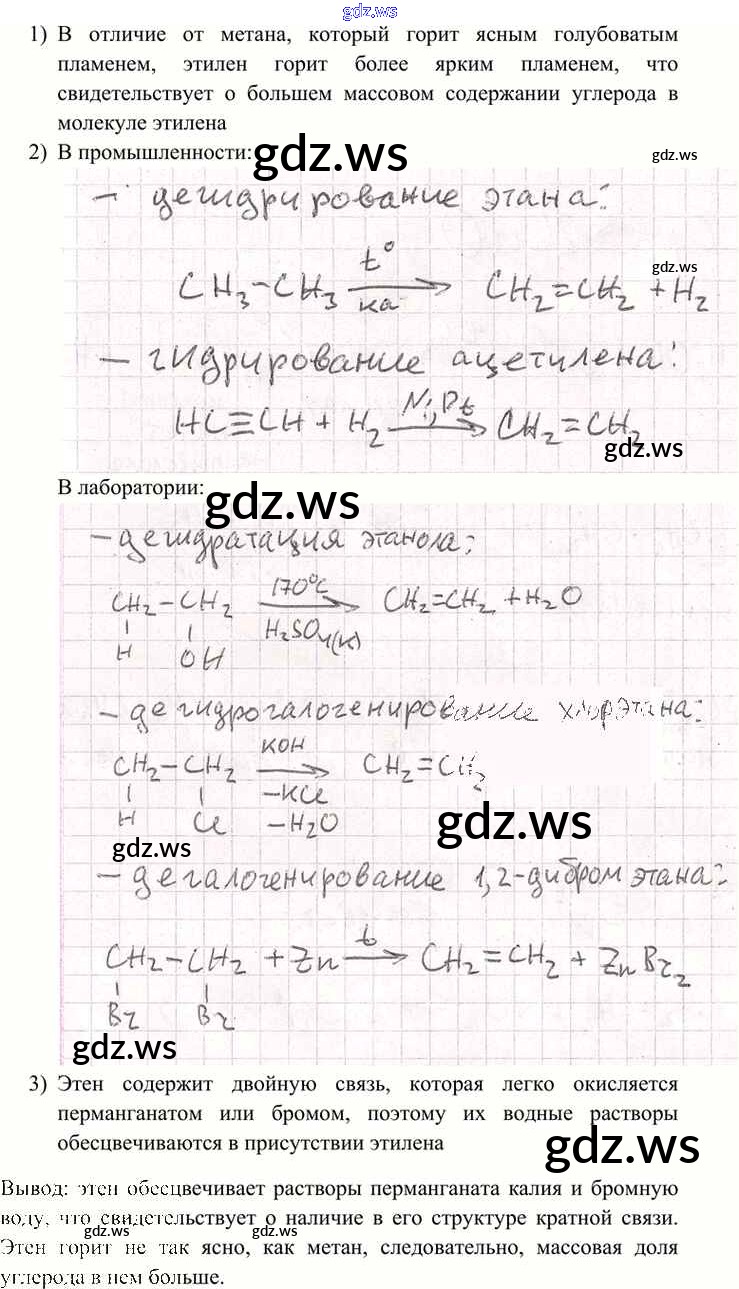 gdz.ws
1) В отличие от метана, который горит ясным голубоватым
пламенем, этилен горит более ярким пламенем, что
свидетельствует о большем массовом содержании углерода в
молекуле этилена
2) В промышленности:
gdz.ws
gdz.ws
– дегидрирование этана:
gdz.ws
t°
CH₃–CH₃ → CH₂=CH₂ + H₂
ка
– гидрирование ацетилена:
Ni, Pt
HC≡CH + H₂ → CH₂=CH₂
gdz.ws
В лаборатории:
gdz.ws
– дегидратация этанола:
170°C
CH₂–CH₂ → CH₂=CH₂ + H₂O
H₂SO₄(к)
H OH
– дегидрогалогенирование хлорэтана:
КОН
CH₂–CH₂ → CH₂=CH₂
–KCl
H Cl –H₂O
gdz.ws
gdz.ws
– дегалогенирование 1,2-дибромэтана:
t
CH₂–CH₂ + Zn → CH₂=CH₂ + ZnBr₂
Br Br
gdz.ws
3) Этен содержит двойную связь, которая легко окисляется
перманганатом или бромом, поэтому их водные растворы
обесцвечиваются в присутствии этилена
gdz.ws
Вывод: этен обесцвечивает растворы перманганата калия и бромную
воду, что свидетельствует о наличие в его структуре кратной связи.
gdz.ws
gdz.ws
Этен горит не так ясно, как метан, следовательно, массовая доля
углерода в нем больше.